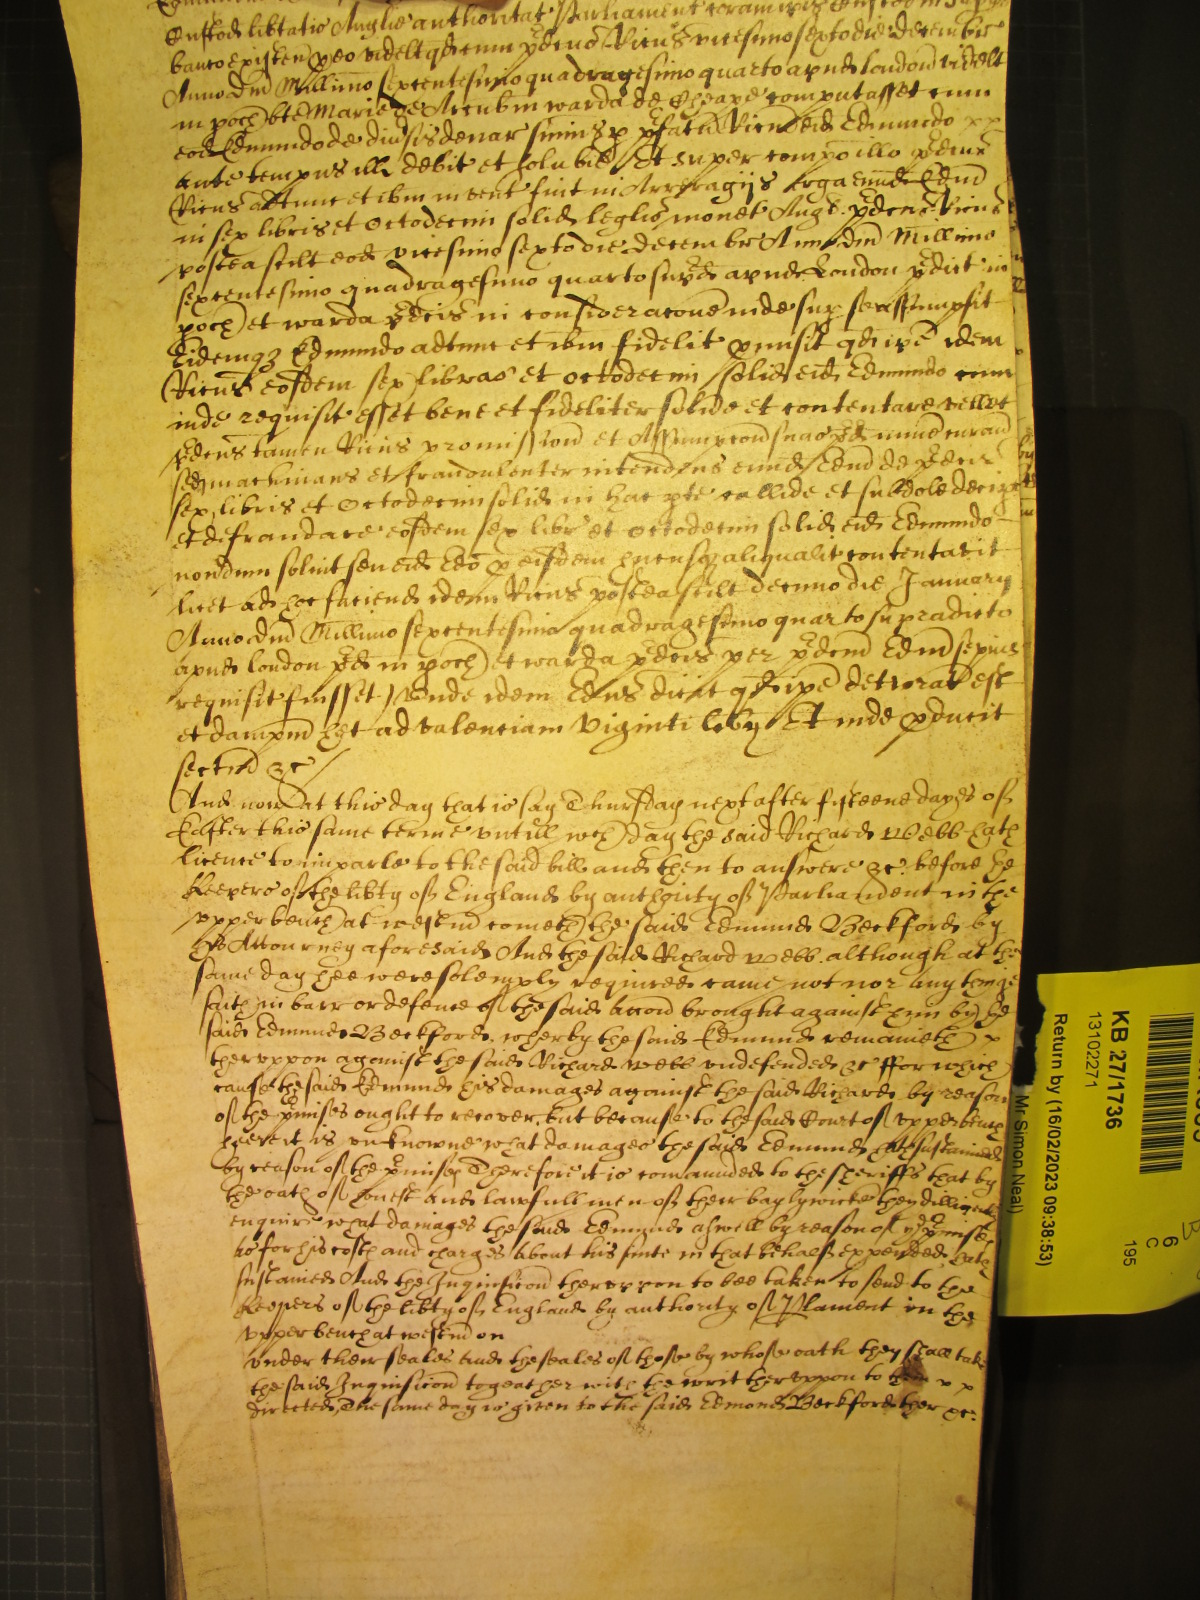 Custod libtatis Anglie authoritat Parliament coram
banco existen p eo videlt qd cum pdcus Ricus vicesimo sexto die Decembr
Anno Dni Millimo sexcentesimo quadragesimo quarto apud London videlt
in poch bte Marie de Arcub in warda de Cheape computasset cum
eod Edmundo de divsis denar sumis p pfatu Ricm eid Edmundo
ante tempus ill debit et solubil Et super compo illo pdcus
Ricus adtunc et ibm invent fuit in Arreragijs erga eund Edm
in sex libris et octodecim solid leglis monet Angl pdcus Ricus
postea scilt eod vicesimo sexto die Decembr Anno Dni Millimo
sexcentesimo quadragesimo quarto supd apud London pdict in
poch et warda pdcis in consideracone inde sup se assumpsit
Eidemqz Edmundo adtunc et ibm fidelit pmisit qd ipe idem
Ricus eosdem sex libras et octodecim solid eid Edmundo cum
inde requisit esset bene et fideliter solvde et contentare vellet
pdcus tamen Ricus promission et Assumpcon suas pd minime curan
sed machinans et fraudulenter intendens eund Edm de pdcis
sex libris et octodecim solid in hac pte callide et subdole decipe
et defraudare eosdem sex libr et octodecim solid eid Edmundo
nondum solvit seu eid Edo p eisdem hucusqz aliqualit contentavit
licet ad hoc faciend idem Ricus postea scilt decimo die January
Anno Dni Millimo sexcentesimo quadragesimo quarto supradicto
apud London pd in poch et warda pdcis per pdcm Edm sepius
requisit fuisset Unde idem Edus dicit qd ipe deteriorat est
et dampnu het ad valenciam viginti libr Et inde pducit
sectam &c
And now at this day that is say Thursday next after fifteene dayes of
Easter this same terme untill wch day the said Richard Webb hath
licence to imparle to the said bill and then to answere &c before the
Keepers of the libty of England by authority of Parliament in the
upper bench at westm cometh the said Edmund Beckford by
his Attourney aforesaid And the said Richard Webb although at the
same day hee were solemply required came not nor any thinge
saith in barr or defence of the said accon brought against him by the
said Edmund Beckford wherby the said Edmund remaineth
thereuppon against the said Richard Webb undefended &c ffor which
cause the said Edmund his damages against the said Richard by reason
of the pmises ought to recover but because to the said Court of upper bench
heere it is unknowne what damages the said Edmund hath sustained
by reason of the pmises Therefore it is comaunded to the sheriffs that by
the oath of honest and lawfull men of their baylywicke they dilligently
enquire what damages the said Edmund aswell by reason of the pmises
as for his costs and charges about his suite in that behalf expended hath
sustained And the Inquisicon thereuppon to bee taken to send to the
Keepers of the libty of England by authority of Plament in the
upper bench at westm on
under their seales and the seales of those by whose oath they shall take
the said Inquisicon togeather with the writ thereuppon to them
directed The same day is given to the said Edmond Beckford ther &c
KB 27/1736
13102271
Return by (16/02/2023 09:38:53)
Mr Simon Neal)
6
C
195